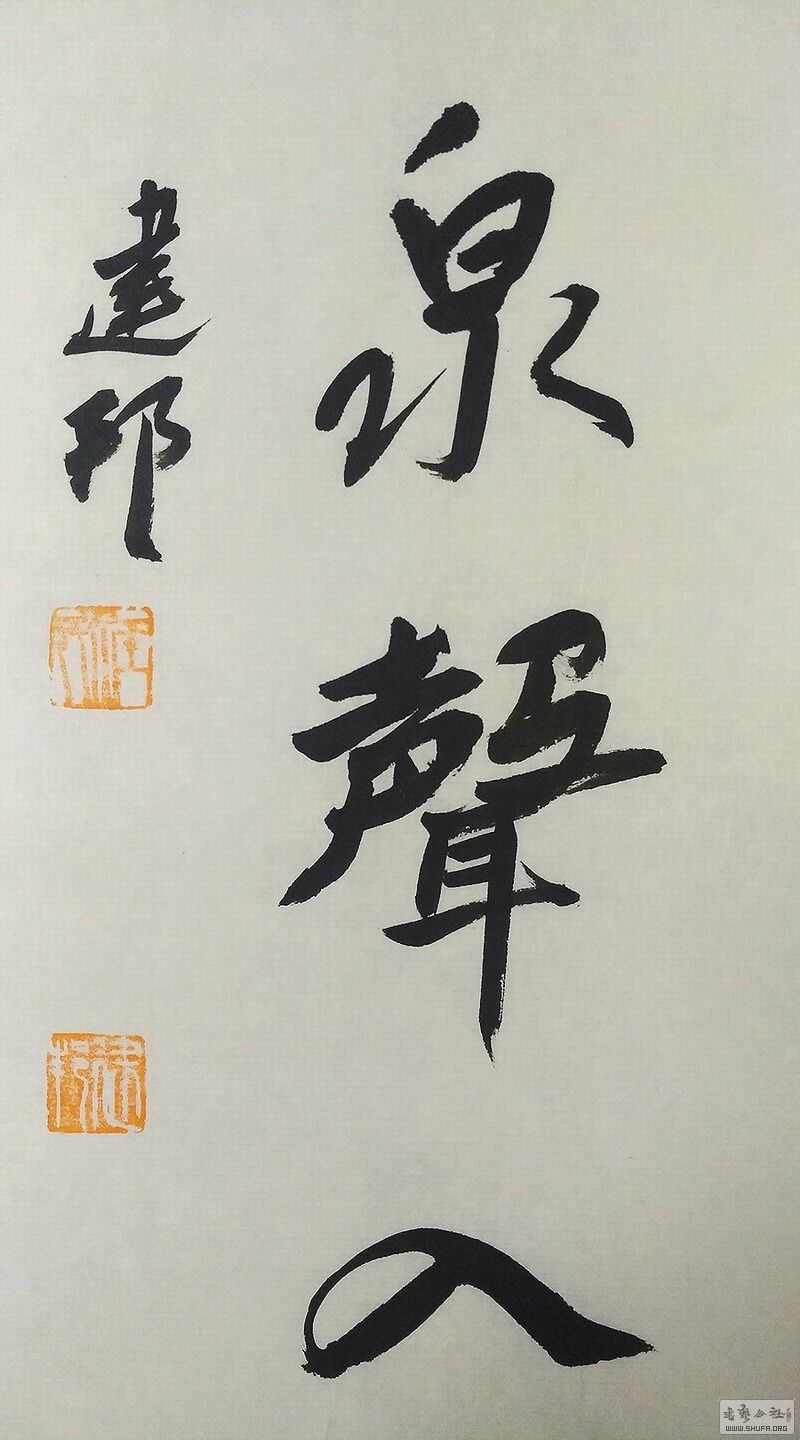 泉聲入
建邦
书艺公社
WWW.SHUFA.ORG